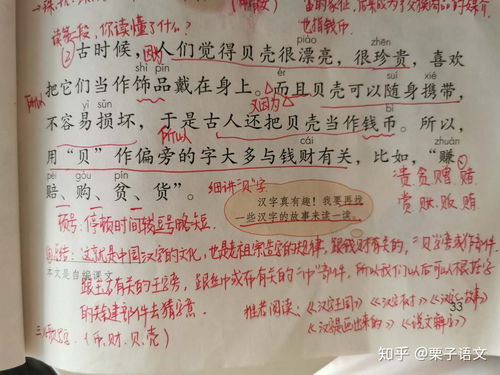 读第二段，你读懂了什么？
也指钱币。
②古时候，因为人们觉得贝壳很漂亮，很珍贵，喜欢
piào zhēn
shì pǐn
所以把它们当作饰品戴在身上。而且贝壳可以随身携带，
ěr suí xié
又因为
yì sǔn bì
不容易损坏，于是古人还把贝壳当作钱币。所以，
所以
cái zhuàn
用“贝”作偏旁的字大多与钱财有关，比如，“赚
péi gòu pín
赔、购、贫、货”。
细讲“贝”字
贵、贫、赠、赌
赏、账、贩、贿
汉字真有趣！我要再找
一些汉字的故事来读一读。
顿号：停顿时间较逗号略短。
总结：这就是中国汉字的文化，也是老祖宗造字的规律，跟钱财有关的，“贝”字旁或作部件，
本文是自编课文
跟玉有关的王字旁，跟丝巾或布有关的“巾”部件，所以我们以后可以根据字
的关键部件去猜字意。
推荐阅读：《汉字王国》《汉字树》《汉字的故事》
33
《汉字是画出来的》《说文解字》
（币、财、贝、壳）
知乎 @栗子语文